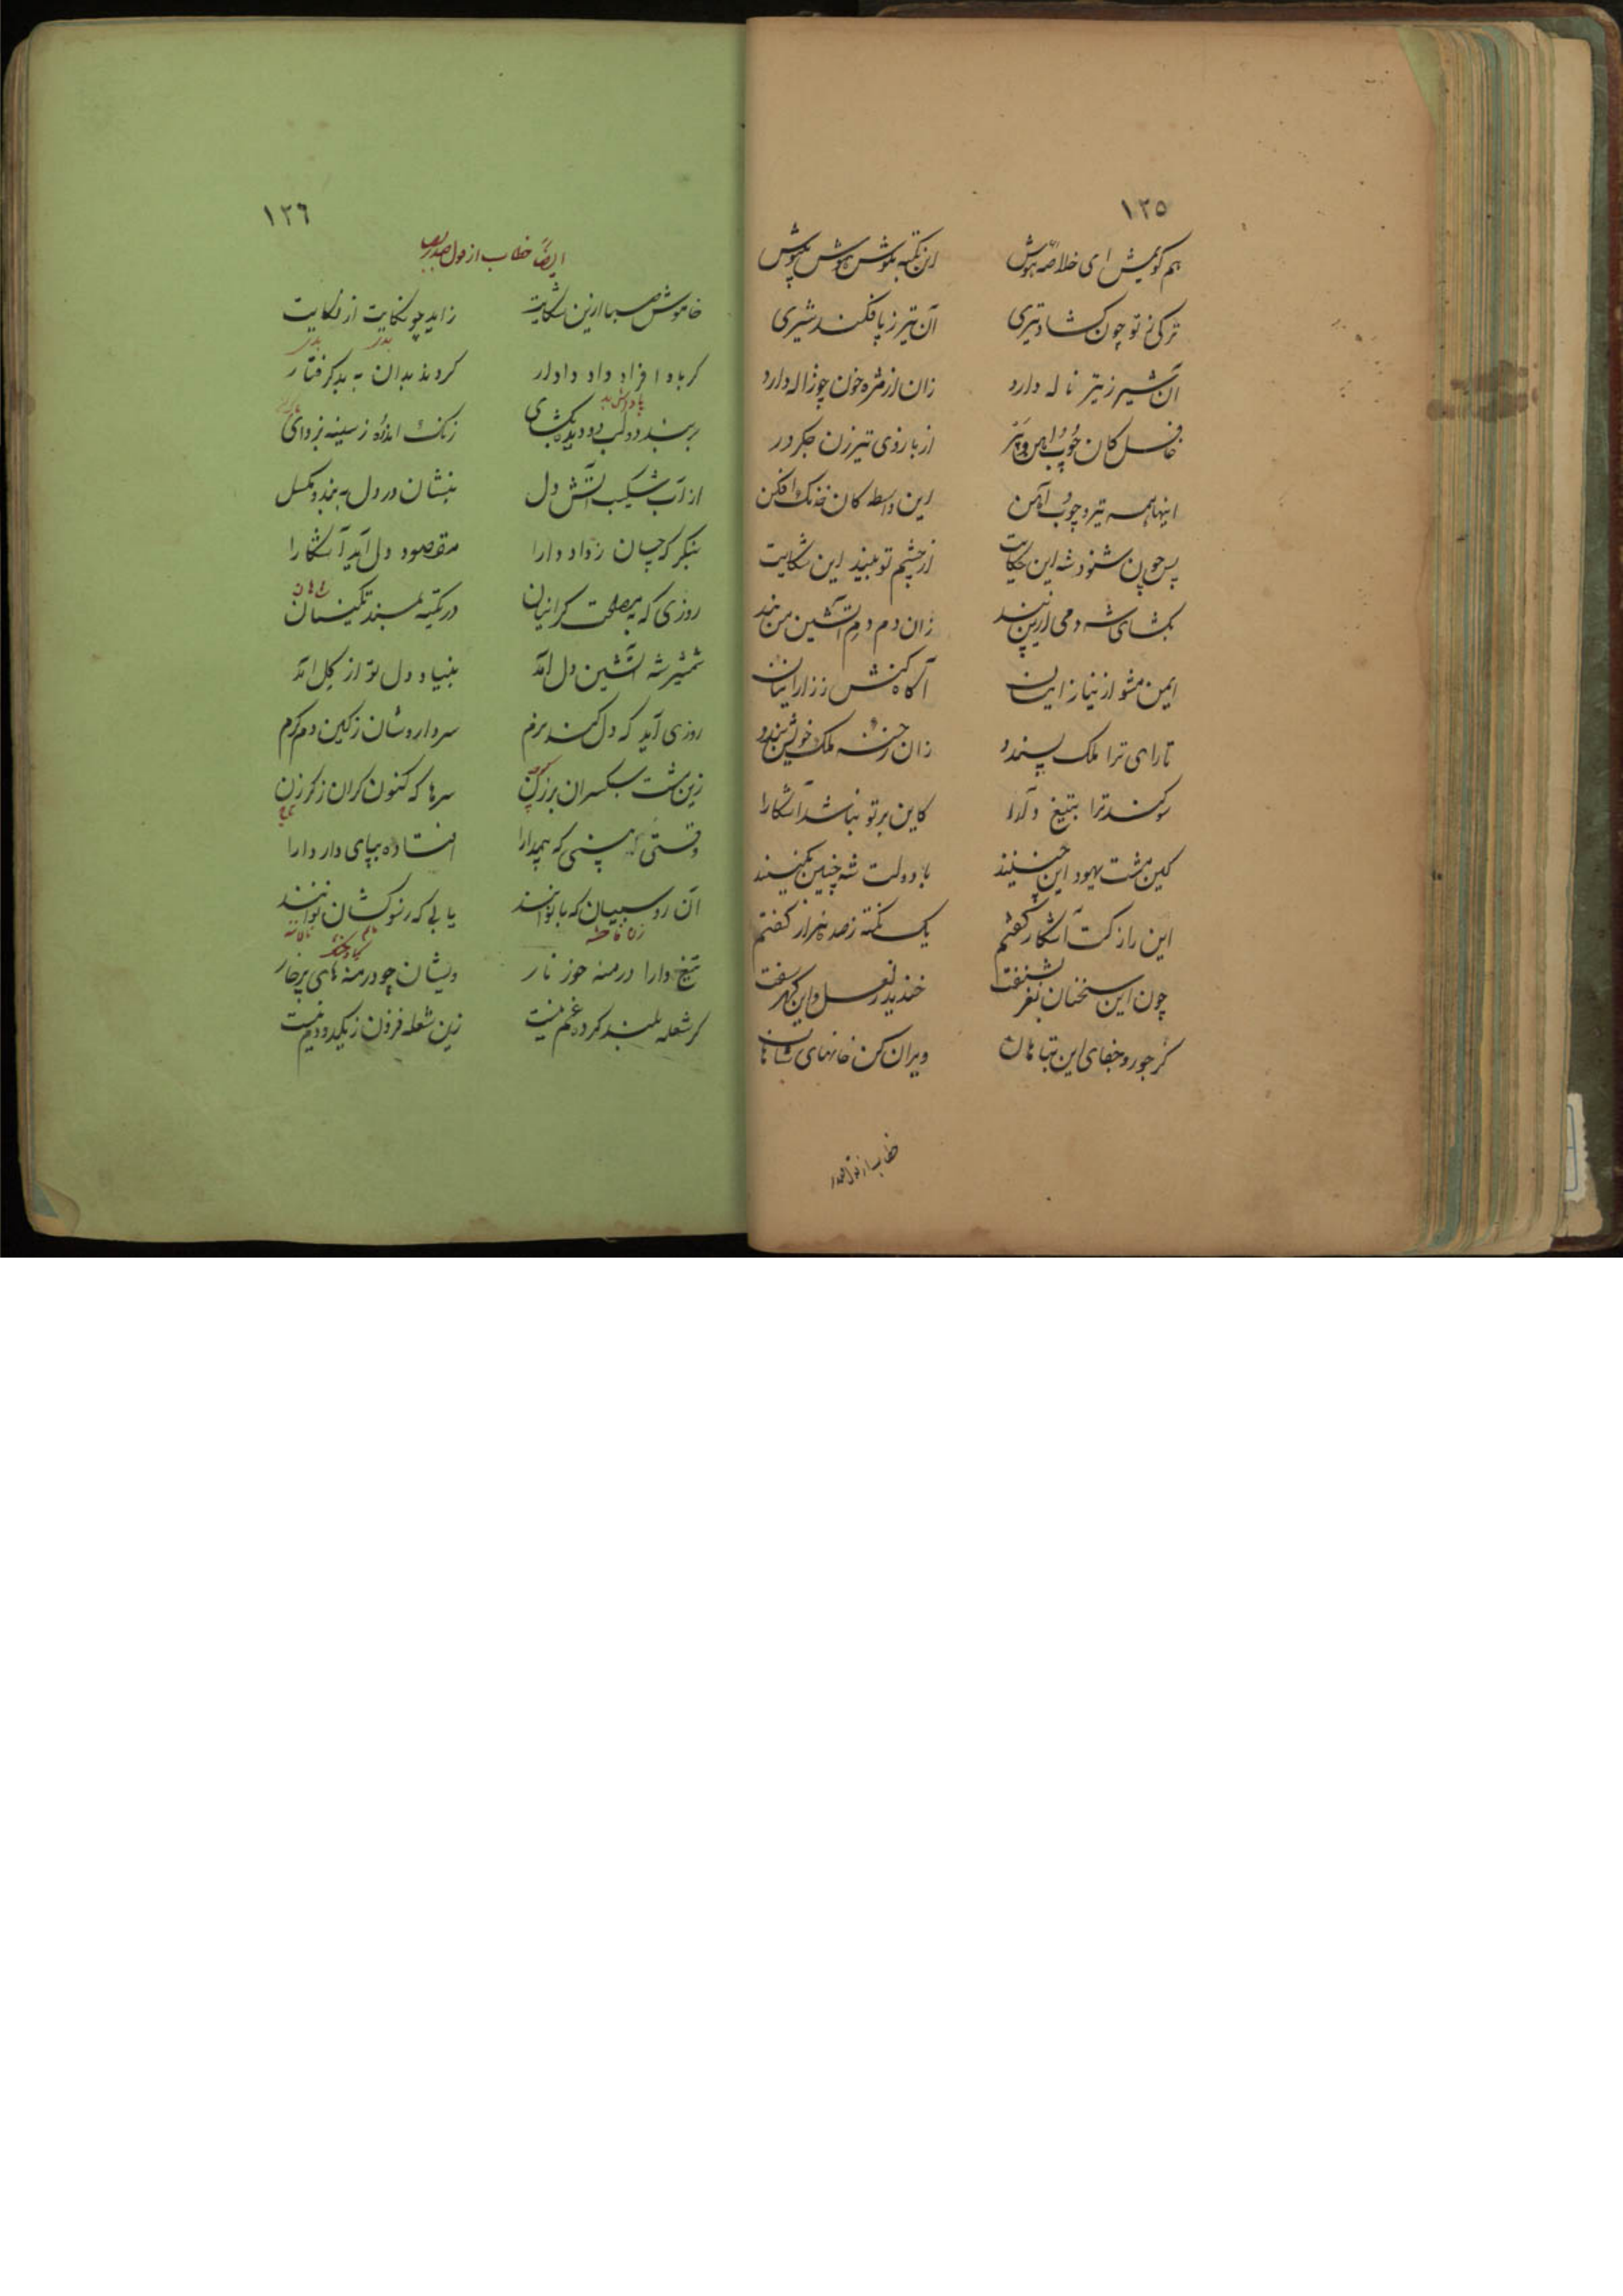 ١٣٥
هم گویمش ای خلاصه هوش این نکته بنوش هوش
ترکی تو چون گشاد تیری آن تیر ز پا فکند شیری
آن شیر ز تیر ناله دارد زان از مژه خون چو ژاله دارد
غافل کان چوب آهن و پر از بازوی تیرزن جگر در
اینها همه تیر و چوب آهن این واسطه کان خدنگ افکن
پس چون شنود شه این حکایت از چشم تو بیند این شکایت
بگشای شه دمی ازین بند زان دم دم آتشین من بند
ایمن مشو از نیاز ایشان آگاه کنش ز راز ایشان
تا رای ترا ملک پسندد زان رخنه ملک خویش بندد
سوگند ترا بتیغ دارا کاین بر تو نباشد آشکارا
کین مشت یهود این چنینند با دولت شه چنین بکینند
این راز کت آشکار گفتم یک نکته ز صد هزار گفتم
چون این سخنان نغز بشنفت خندید ز لعل و این گهر سفت
کز جور و جفای این تباهان ویران کن خانهای شاهان
خطاب از قول صدر
١٣٦
ایضاً خطاب از قول صدر
خاموش صبا ازین شکایت زاید چو نکایت از نکایت
بدی بدی
گر باد افراه داد دادار گردند بدان به بد گرفتار
پاداش بد
بربند دو لب دو دیده بگشای زنگ اندُه ز سینه بزدای
از آب شکیب آتش دل بنشان در دل به بند و مگسل
بنگر که چسان ز داد دارا مقصود دل آید آشکارا
شاهان
روزی که به مصلحت گرانیان در تکیه بمسند تکینان
شمشیر شه آتشین دل آمد بنیاد دل تو از گل آمد
روزی آید که دل کند نرم سردار وشان ز کین دم گرم
زین مشت سبکسران سرها که کنون گران ز گرزن
تاج
وقتی بینی که همچو دارا استاده بپای دار دارا
آن روسبیان که بانوانند یابی که رنو کشان نوانند
زن فاحشه
تیغ دارا درمنه خور نار ویشان چو درمنه های پرخار
گر شعله بلند کرده غم نیست زین شعله فزون ز یکدو دم نیست